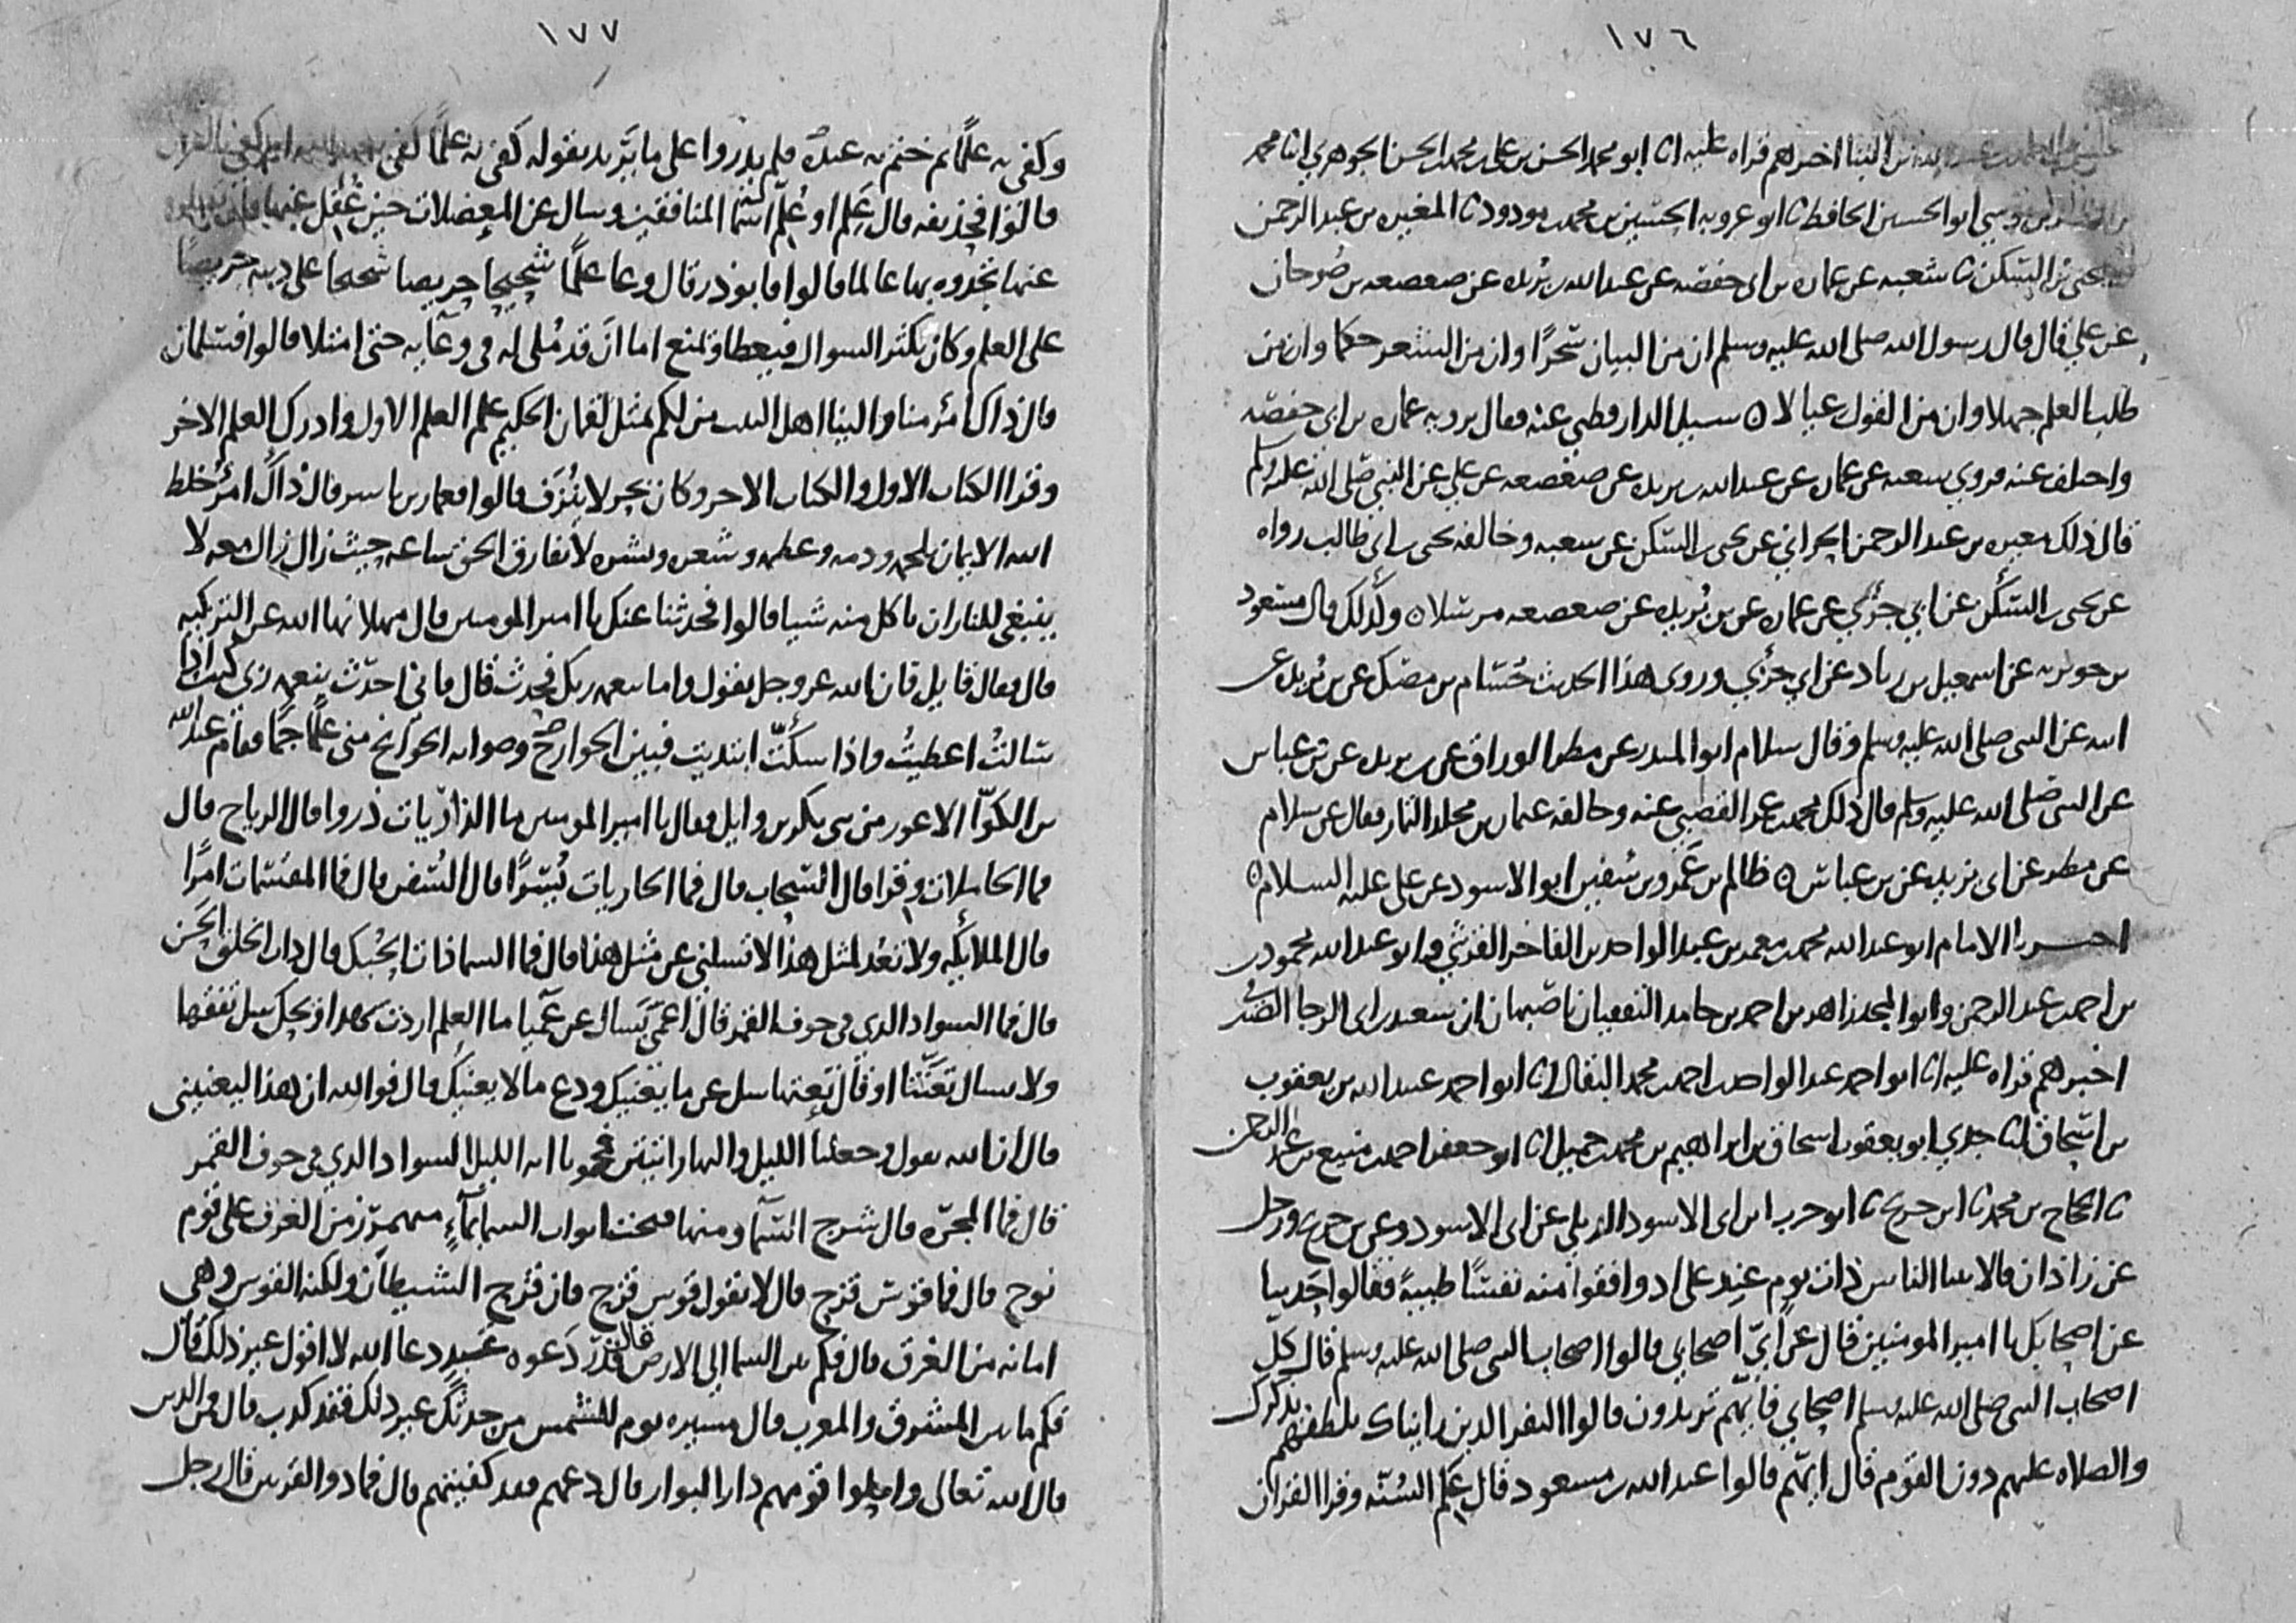 ١٧٦
البنا اخبرهم قراه عليه انا ابو محمد الحسن بن علي بن محمد بن الحسن الجوهري انا محمد
ابو الحسين الحافظ نا ابو عروبه الحسين بن محمد بن مودود نا المغيره بن عبد الرحمن
يحيى بن السكن نا شعبه عن عماره بن ابي حفصه عن عبد الله بن بريده عن صعصعه بن صوحان
عن علي قال قال رسول الله صلى الله عليه وسلم ان من البيان سحرًا وان من الشعر حكما وان من
طلب العلم جهلا وان من القول عيالا ٥ سيل الدارقطني عنه فقال يرويه عماره بن ابي حفصه
واختلف عنه فروي شعبه عن عماره عن عبد الله بن بريده عن صعصعه عن علي عن النبي صلى الله عليه وسلم
قال ذلك مغيره بن عبد الرحمن الحراني عن يحيى بن السكن عن شعبه وخالفه يحيى بن ابي طالب رواه
عن يحيى بن السكن عن ابي جزي عن عماره عن بن بريده عن صعصعه مرسلا ٥ وكذلك قال مسعود
بن جويريه عن اسمعيل بن زياد عن ابي جزي وروى هذا الحديث حسام بن مصك عن بن بريده عن
ابيه عن النبي صلى الله عليه وسلم وقال سلام ابو المنذر عن مطر الوراق عن بن بريده عن بن عباس
عن النبي صلى الله عليه وسلم قال ذلك محمد بن عمر القصبي عنه وخالفه عثمان بن مخلد التمار فقال عن سلام
عن مطر عن ابي بريده عن بن عباس ٥ ظالم بن عمرو بن سفين ابو الاسود عن علي عليه السلام ٥
اخبرنا الامام ابو عبد الله محمد بن معمر بن عبد الواحد بن الفاخر القرشي وابو عبد الله محمود بن
بن احمد بن عبد الرحمن وابو المجد زاهد بن احمد بن حامد الثقفيان باصبهان ان سعيد بن ابي الرجا الصيرفي
اخبرهم قراه عليه انا ابو احمد عبد الواحد بن احمد بن محمد البقال انا ابو احمد عبيد الله بن يعقوب
بن اسحاق انا جدي ابو يعقوب اسحاق بن ابراهيم بن محمد بن جميل انا ابو جعفر احمد بن منيع بن عبد الرحمن
نا الحجاج بن محمد نا ابن جريج نا ابو حرب ابن ابي الاسود الديلي عن ابي الاسود وعن بن جريج ورجل
عن زاذان قالا بينا الناس ذات يوم عند علي اذ وافقوا منه نفسًا طيبة فقالوا حدثنا
عن اصحابك يا امير المومنين قال عن اي اصحابي قالوا اصحاب النبي صلى الله عليه وسلم قال كل
اصحاب النبي صلى الله عليه وسلم اصحابي فايهم تريدون قالوا النفر الذين رايناك تلطفهم بذكرك
والصلاه عليهم دون القوم قال ايهم قالوا عبد الله بن مسعود قال علم السنه وقرا القران
١٧٧
وكفى به علمًا ثم ختم به عنده فلم يدروا على ما يريد بقوله كفى به علمًا كفى
قالوا فحذيفه قال علم او عُلّم اسما المنافقين وسال عن المعضلات حين غفل عنها فان
عنها تجدوه بها عالما قالوا فابو ذر قال وعا علمًا شحيحا حريصا شحيحا على دينه حريصًا
على العلم وكان يكثر السوال فيعطا ويمنع اما ان قد ملى له في وعآيه حتى امتلا قالوا فسلمان
قال ذاك امرُ منا والينا اهل البيت من لكم بمثل لقمان الحكيم علم العلم الاول وادرك العلم الاخر
وقرا الكتاب الاول والكتاب الاخر وكان بحر لا ينزف قالوا فعمار بن ياسر قال ذاك امرُ خلط
الله الايمان بلحمه ودمه وعظمه وشعره وبشره لا يفارق الحق ساعه حيث زال زال معه لا
ينبغي للنار ان تاكل منه شيا قالوا فحدثنا عنك يا امير المومنين قال مهلا نهانا الله عن التزكيه
قال فقال قايل فان الله عز وجل يقول واما بنعمه ربك فحدث قال فاني احدث بنعمه ربي كنت اذا
سالتُ اعطيتُ واذا سكتّ ابتديت فبين الجوارح وصوابه الجوانح مني علمًا جمًا فقام عبد الله
بن الكوّا الاعور من بني بكر بن وايل فقال يا امير المومنين ما الذاريات ذروا قال الرياح قال
فما الحاملات وقرا قال السحاب قال فما الجاريات يُسرًا قال السُفن قال فما المقسمات امرًا
قال الملائكه ولا تعُد لمثل هذا لا تسلني عن مثل هذا قال فما السما ذات الحُبك قال ذات الخلق الحسن
قال فما السواد الذي في جوف القمر قال اعمى يسال عن عميا ما العلم اردت بهذا ويحك سل تفقها
ولا تسال تعنّتا او قال تعتها سل عن ما يعنيك ودع ما لا يعنيك قال فوالله ان هذا ليعنيني
قال ان الله يقول وجعلنا الليل والنهار ايتين فمحونا ايه الليل السواد الذي في جوف القمر
قال فما المجرّه قال شرج السمآ ومنها فتحت ابواب السما بمآء منهمر زمن الغرق على قوم
نوح قال فما قوس قزح قال لا تقول قوس قزح فان قزح الشيطان ولكنه القوس وهي
امانه من الغرق قال فكم بين السما الي الارض قال قدر دعوه عبد دعا الله لا اقول غير ذلك قال
فكم ما بين المشرق والمغرب قال مسيره يوم للشمس من حدثك غير ذلك فقد كذب قال فمن الذين
قال الله تعالى واحلوا قومهم دار البوار قال دعهم فقد كفيتهم قال فما ذو القرنين قال رجل